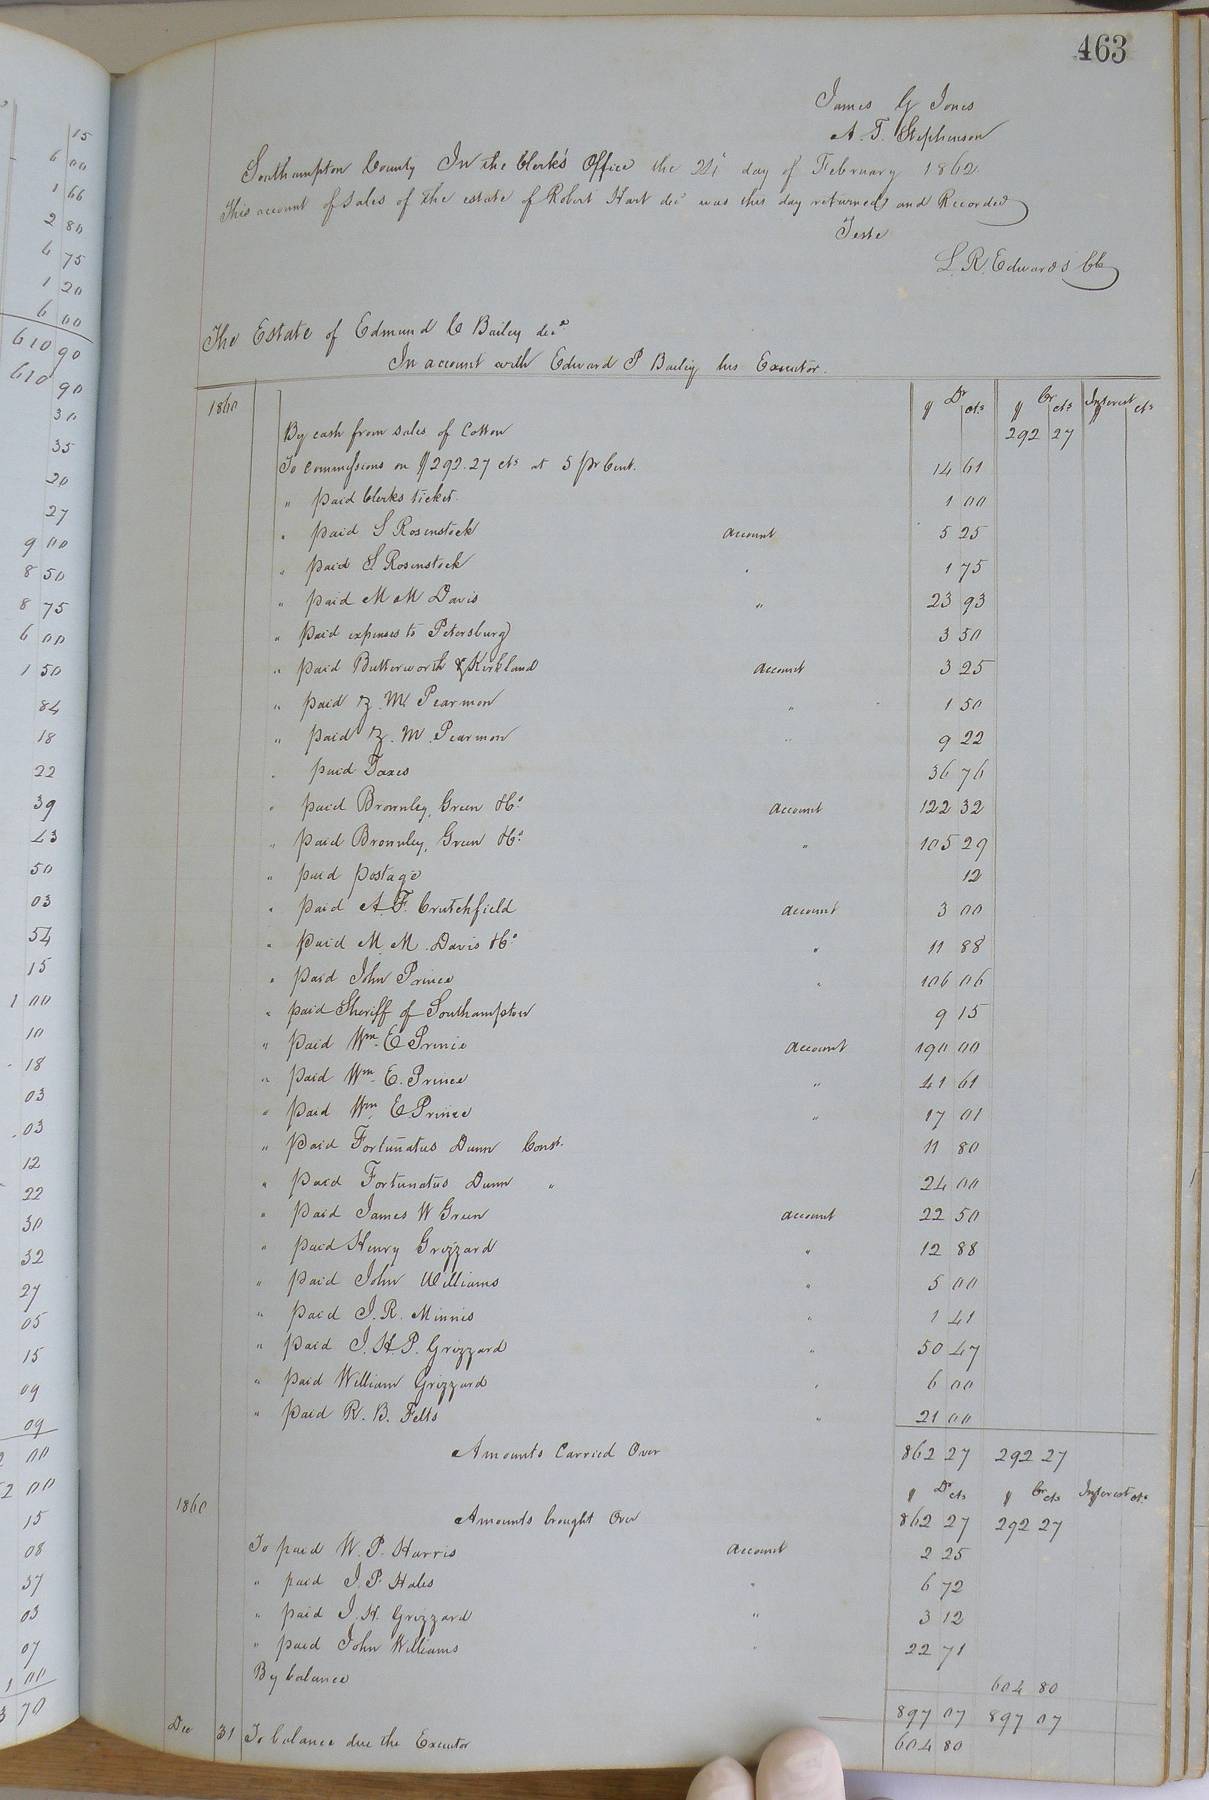 463
James G Jones
A. T. Stephenson
Southampton County In the Clerk's Office the 24 day of February 1862
This account of sales of the estate of Robert Hart decd was this day returned and Recorded
Teste
L. R. Edwards CC
The Estate of Edmund C Bailey decd
In account with Edward P Bailey his Executor.
1860 $ Dr cts $ Cr cts Interest cts
By cash from sales of Cotton 292 27
To commissions on $292.27 cts at 5 pr Cent. 14 61
" paid Clerks ticket 1 00
" paid S Rosenstock account 5 25
" paid S Rosenstock " 1 75
" paid M M Davis " 23 93
" paid expenses to Petersburg 3 50
" paid Butterworth & Kirkland account 3 25
" paid Z. M. Pearmon " 1 50
" paid Z. M. Pearmon " 9 22
" paid Taxes 36 76
" paid Brownley, Green & Co account 122 32
" paid Brownley, Green & Co " 105 29
" paid postage 12
" paid A. F. Crutchfield account 3 00
" paid M. M. Davis & Co " 11 88
" paid John Prince " 106 06
" paid Sheriff of Southampton 9 15
" paid Wm. E Prince account 190 00
" paid Wm. E. Prince " 41 61
" paid Wm. E Prince " 17 01
" paid Fortunatus Dunn Const. 11 80
" paid Fortunatus Dunn " 24 00
" paid James W Green account 22 50
" paid Henry Grizzard " 12 88
" paid John Williams " 5 00
" paid J. R. Minnis " 1 41
" paid J. H. P. Grizzard " 50 47
" paid William Grizzard " 6 00
" paid R. B. Felts " 21 00
Amounts Carried Over 862 27 292 27
1860 $ Dr cts $ Cr cts Interest cts
Amounts brought Over 862 27 292 27
To paid W. P. Harris account 2 25
" paid J. P. Hales " 6 72
" paid J. H. Grizzard " 3 12
" paid John Williams " 22 71
By balance 604 80
897 07 897 07
Dec 31 To balance due the Executor 604 80
15
6 00
1 66
2 80
4 75
1 20
6 00
610 90
610 90
30
35
20
27
9 00
8 50
8 75
6 00
1 50
84
18
22
39
43
50
03
54
15
1 00
10
18
03
03
12
22
30
32
27
05
15
09
09
00
2 00
15
08
37
03
07
1 00
3 70